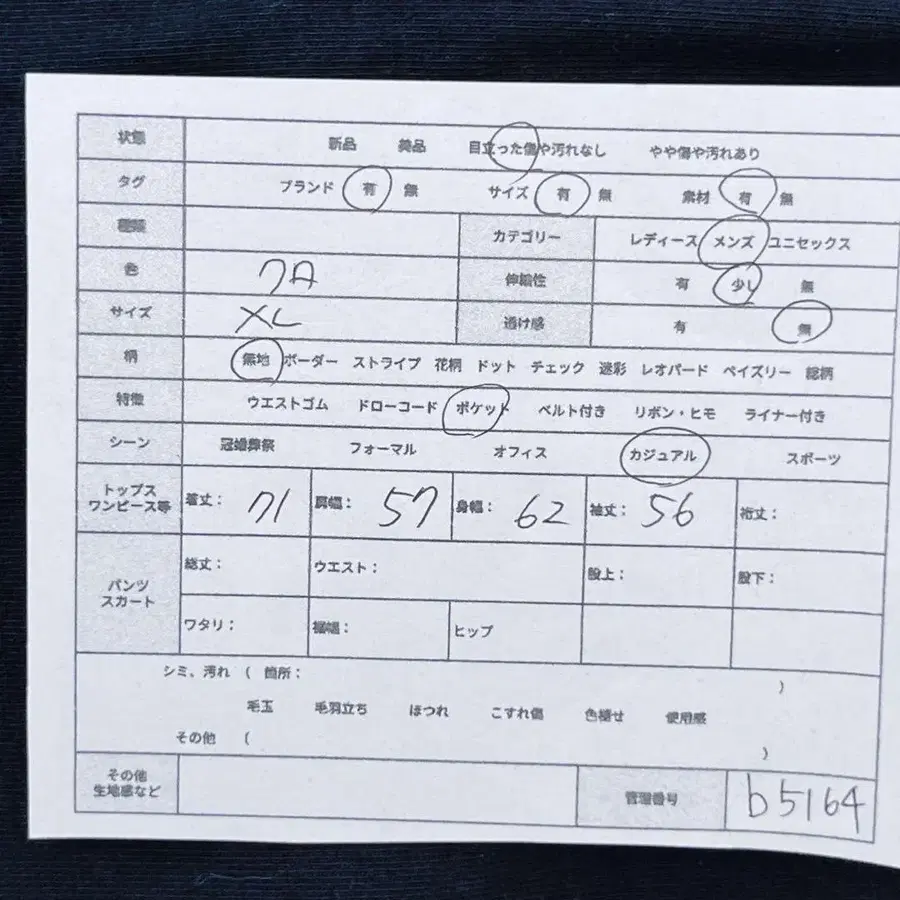 状態 新品 美品 目立った傷や汚れなし やや傷や汚れあり
タグ ブランド 有 無 サイズ 有 無 素材 有 無
種類 カテゴリー レディース メンズ ユニセックス
色 伸縮性 有 少し 無
サイズ XL 透け感 有 無
柄 無地 ボーダー ストライプ 花柄 ドット チェック 迷彩 レオパード ペイズリー 総柄
特徴 ウエストゴム ドローコード ポケット ベルト付き リボン・ヒモ ライナー付き
シーン 冠婚葬祭 フォーマル オフィス カジュアル スポーツ
トップス
ワンピース等 着丈: 71 肩幅: 57 身幅: 62 袖丈: 56 裄丈:
パンツ
スカート 総丈: ウエスト: 股上: 股下:
ワタリ: 裾幅: ヒップ
シミ、汚れ ( 箇所: )
毛玉 毛羽立ち ほつれ こすれ傷 色褪せ 使用感
その他 ( )
その他
生地感など 管理番号 b5164